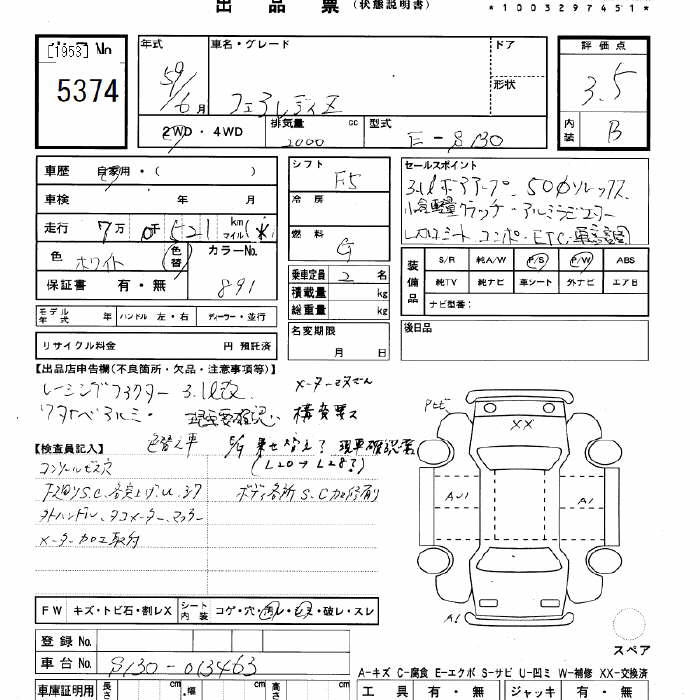 出品票 (状態説明書)
*1003297451*
[1953] No
5374
年式 59/6月
車名・グレード フェアレディZ
ドア
形状
評価点 3.5
内装 B
2WD・4WD
排気量 2000 cc
型式 E-S130
車歴 自家用・( )
車検 年 月
走行 7万0千521 km マイル
色 ホワイト 色替
カラーNo. 891
保証書 有・無
シフト F5
冷房
燃料 G
乗車定員 2 名
積載量 kg
総重量 kg
セールスポイント
3.1ℓボアアップ 50φソレックス
軽量クラッチ・アルミラジエター
コンポ・ETC・車高調
装備品 S/R 純A/W P/S P/W ABS
純TV 純ナビ 革シート 外ナビ エアB
ナビ型番:
モデル年式 年 ハンドル 左・右 ディーラー・並行
名変期限 月 日
後日品
リサイクル料金 円 預託済
【出品店申告欄(不良箇所・欠品・注意事項等)】
レーシングファクター 3.1ℓ改
ワタナベアルミ・ 現車要確認
【検査員記入】
色替え車 E/G 乗せ替え? 現車確認要
(L20→L28?)
コンソールビス穴
ボディ各所 S、C加修有り
メーター加工取付
FW キズ・トビ石・割レX シート内装 コゲ・穴・汚レ・シミ・破レ・スレ
登録No.
車台No. S130-013463
車庫証明用 長さ cm 幅 cm 高さ cm
XX
AU1
A1
A1
スペア
A-キズ C-腐食 E-エクボ S-サビ U-凹ミ W-補修 XX-交換済
工具 有・無 ジャッキ 有・無